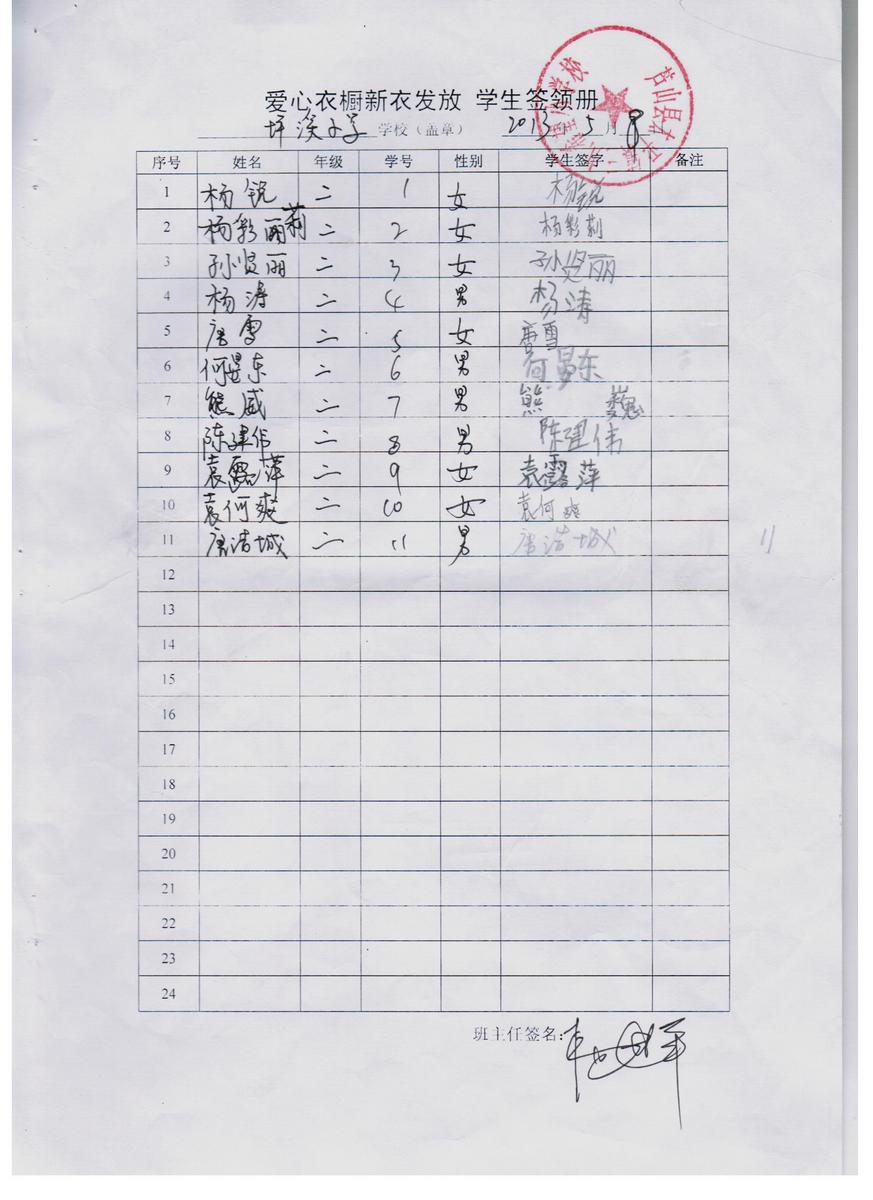 爱心衣橱新衣发放 学生签领册
坪溪小学 学校（盖章） 2013年5月8
芦山县太平镇
序号 姓名 年级 学号 性别 学生签字 备注
1 杨锐 二 1 女 杨锐
2 杨彩莉 二 2 女 杨彩莉
3 孙贤丽 二 3 女 孙贤丽
4 杨涛 二 4 男 杨涛
5 唐雪 二 5 女 唐雪
6 何昙东 二 6 男 何昙东
7 熊威 二 7 男 熊
8 陈建伟 二 8 男 陈建伟
9 袁露萍 二 9 女 袁露萍
10 袁何爽 二 10 女 袁何爽
11 唐洁城 二 11 男 唐洁城 11
12
13
14
15
16
17
18
19
20
21
22
23
24
班主任签名: